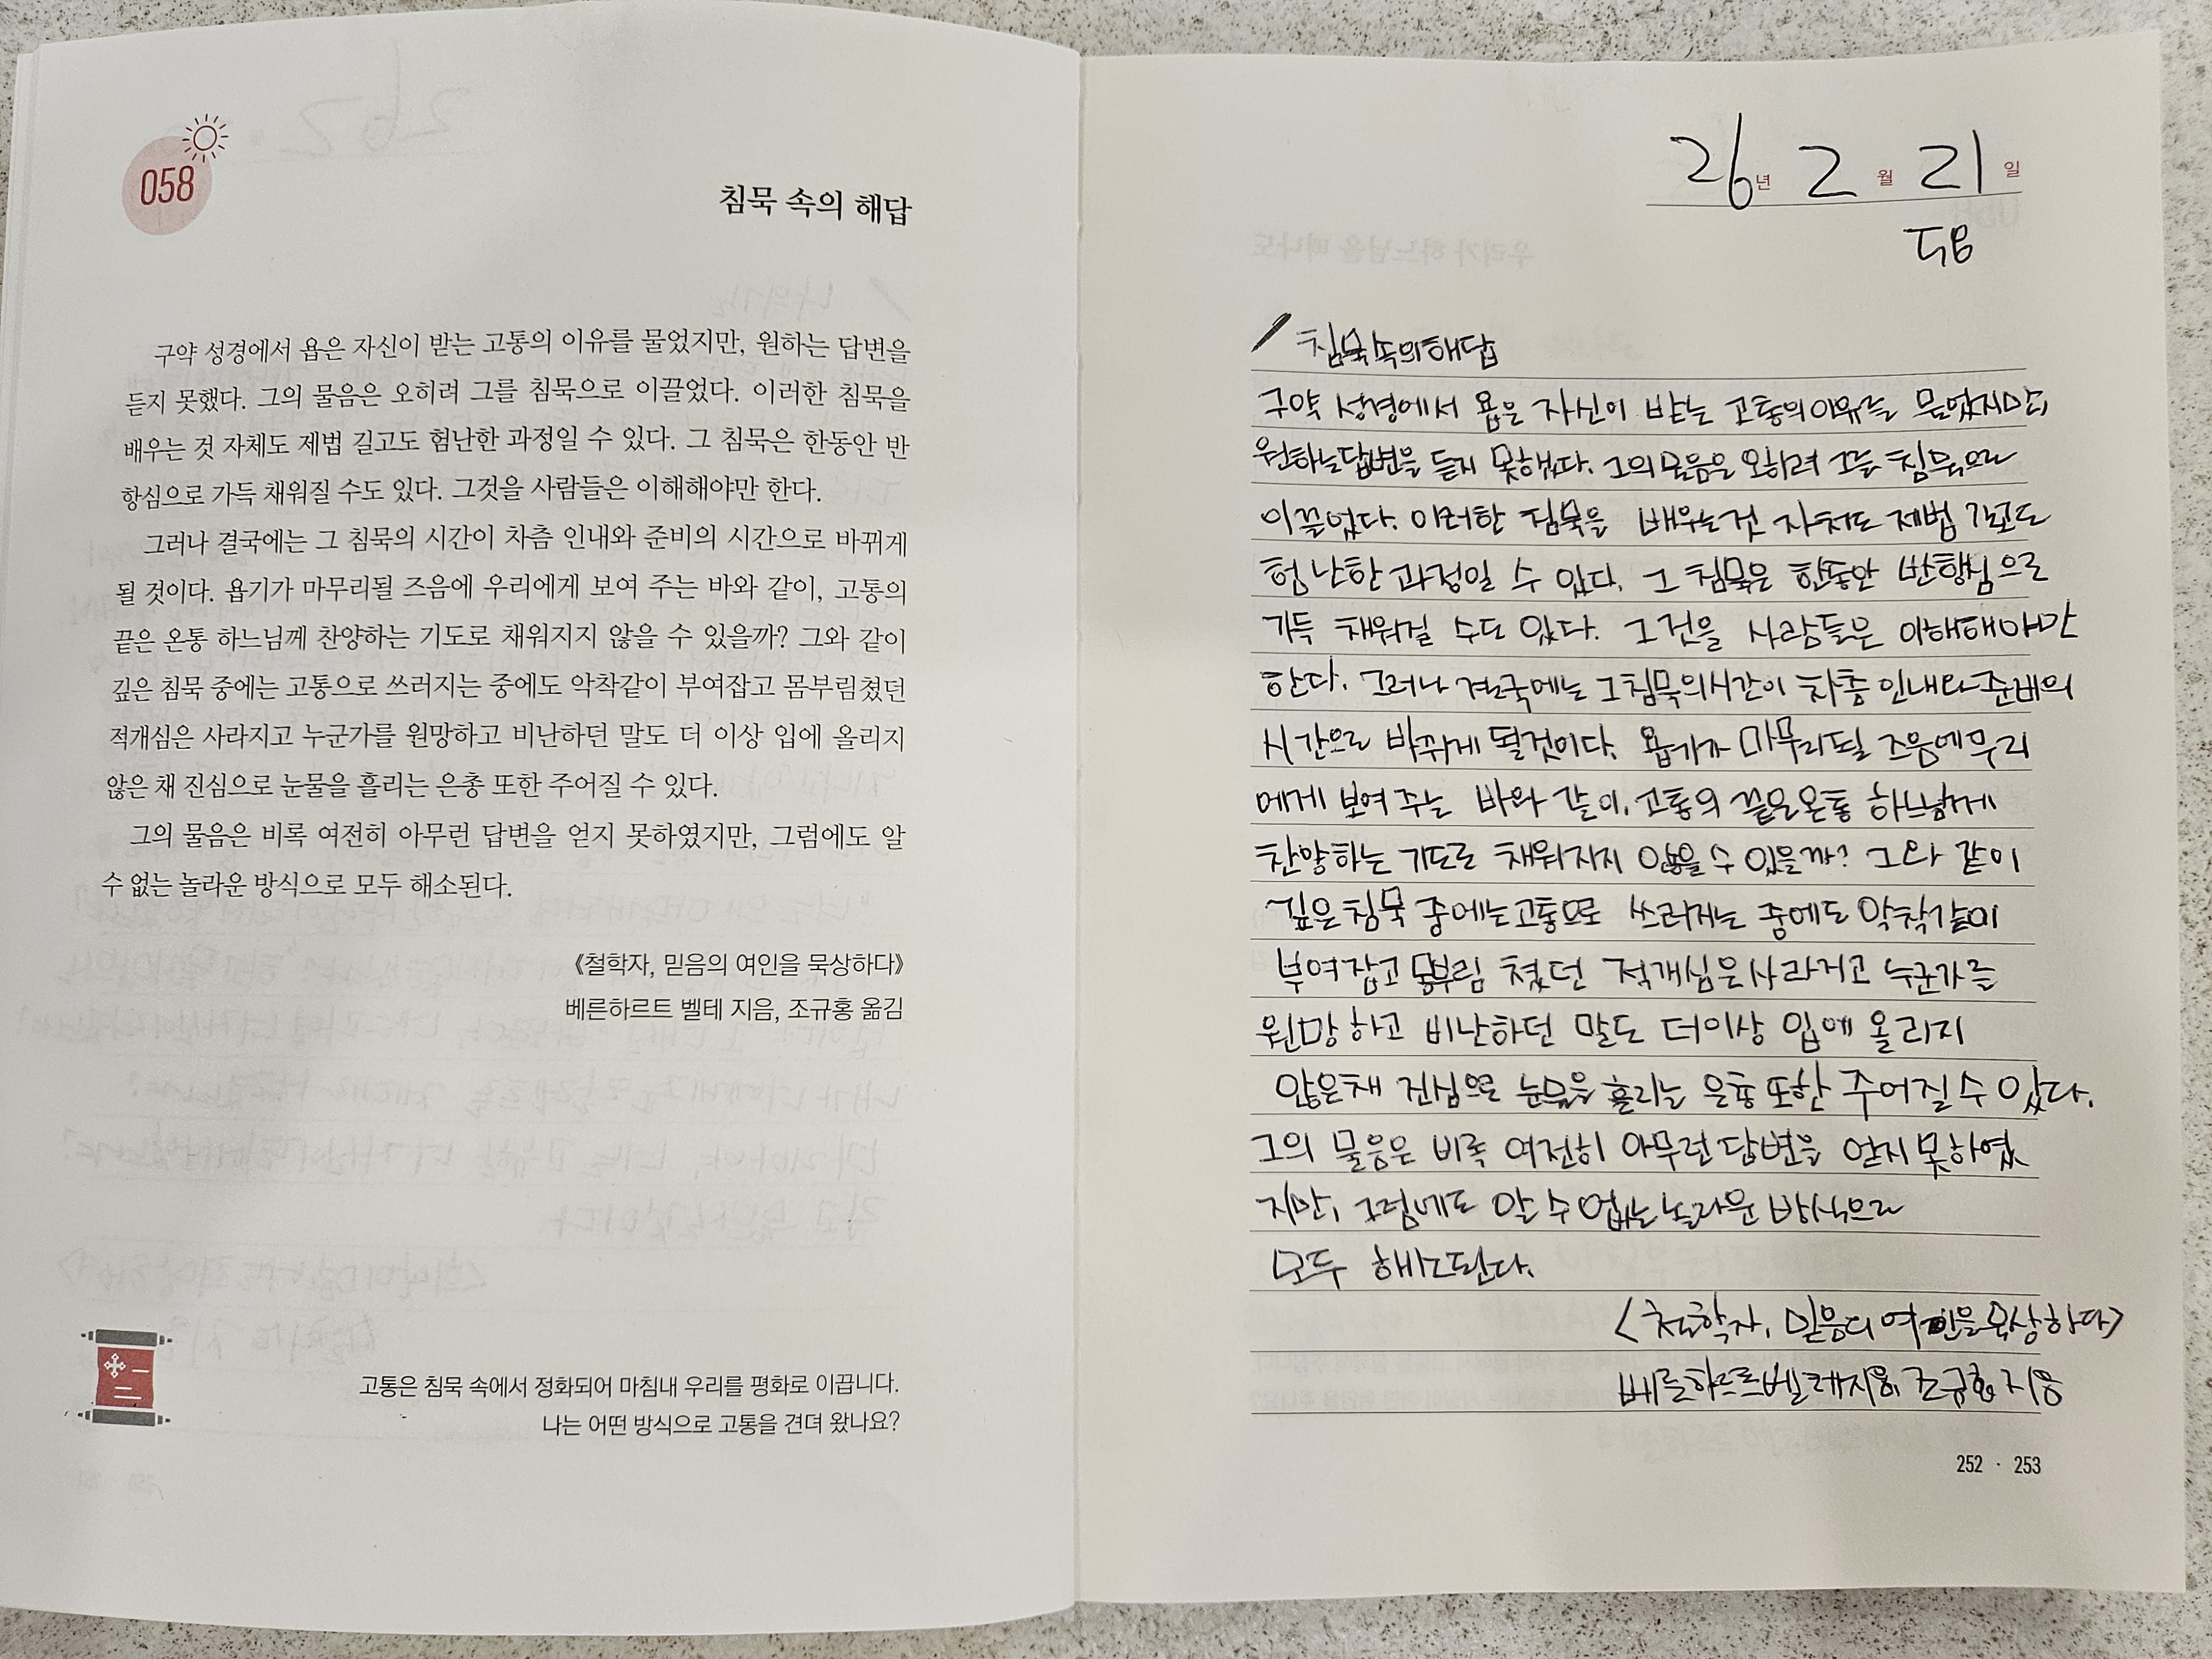 058
침묵 속의 해답
구약 성경에서 욥은 자신이 받는 고통의 이유를 물었지만, 원하는 답변을
듣지 못했다. 그의 물음은 오히려 그를 침묵으로 이끌었다. 이러한 침묵을
배우는 것 자체도 제법 길고도 험난한 과정일 수 있다. 그 침묵은 한동안 반
항심으로 가득 채워질 수도 있다. 그것을 사람들은 이해해야만 한다.
그러나 결국에는 그 침묵의 시간이 차츰 인내와 준비의 시간으로 바뀌게
될 것이다. 욥기가 마무리될 즈음에 우리에게 보여 주는 바와 같이, 고통의
끝은 온통 하느님께 찬양하는 기도로 채워지지 않을 수 있을까? 그와 같이
깊은 침묵 중에는 고통으로 쓰러지는 중에도 악착같이 부여잡고 몸부림쳤던
적개심은 사라지고 누군가를 원망하고 비난하던 말도 더 이상 입에 올리지
않은 채 진심으로 눈물을 흘리는 은총 또한 주어질 수 있다.
그의 물음은 비록 여전히 아무런 답변을 얻지 못하였지만, 그럼에도 알
수 없는 놀라운 방식으로 모두 해소된다.
《철학자, 믿음의 여인을 묵상하다》
베른하르트 벨테 지음, 조규홍 옮김
고통은 침묵 속에서 정화되어 마침내 우리를 평화로 이끕니다.
나는 어떤 방식으로 고통을 견뎌 왔나요?
26년 2월 21일
침묵속의해답
구약 성경에서 욥은 자신이 받는 고통의 이유를 물었지만,
원하는답변을 듣지 못했다. 그의 물음은 오히려 그를 침묵으로
이끌었다. 이러한 침묵을 배우는것 자체도 제법 길고도
험난한 과정일 수 있다. 그 침묵은 한동안 반항심으로
가득 채워질 수도 있다. 그것을 사람들은 이해해야만
한다. 그러나 결국에는 그침묵의시간이 차츰 인내와 준비의
시간으로 바뀌게 될것이다. 욥기가 마무리될 즈음에 우리
에게 보여 주는 바와 같이, 고통의 끝은온통 하느님께
찬양하는 기도로 채워지지 않을 수 있을까? 그와 같이
깊은 침묵 중에는고통으로 쓰러지는 중에도 악착같이
부여잡고 몸부림 쳤던 적개심은사라지고 누군가를
원망하고 비난하던 말도 더이상 입에 올리지
않은채 진심으로 눈물을 흘리는 은총 또한 주어질 수 있다.
그의 물음은 비록 여전히 아무런 답변을 얻지 못하였
지만, 그럼에도 알 수 없는 놀라운 방식으로
모두 해소된다.
<철학자, 믿음의 여인을 묵상하다>
베른하르트벨테지음, 조규홍 지음
252 · 253